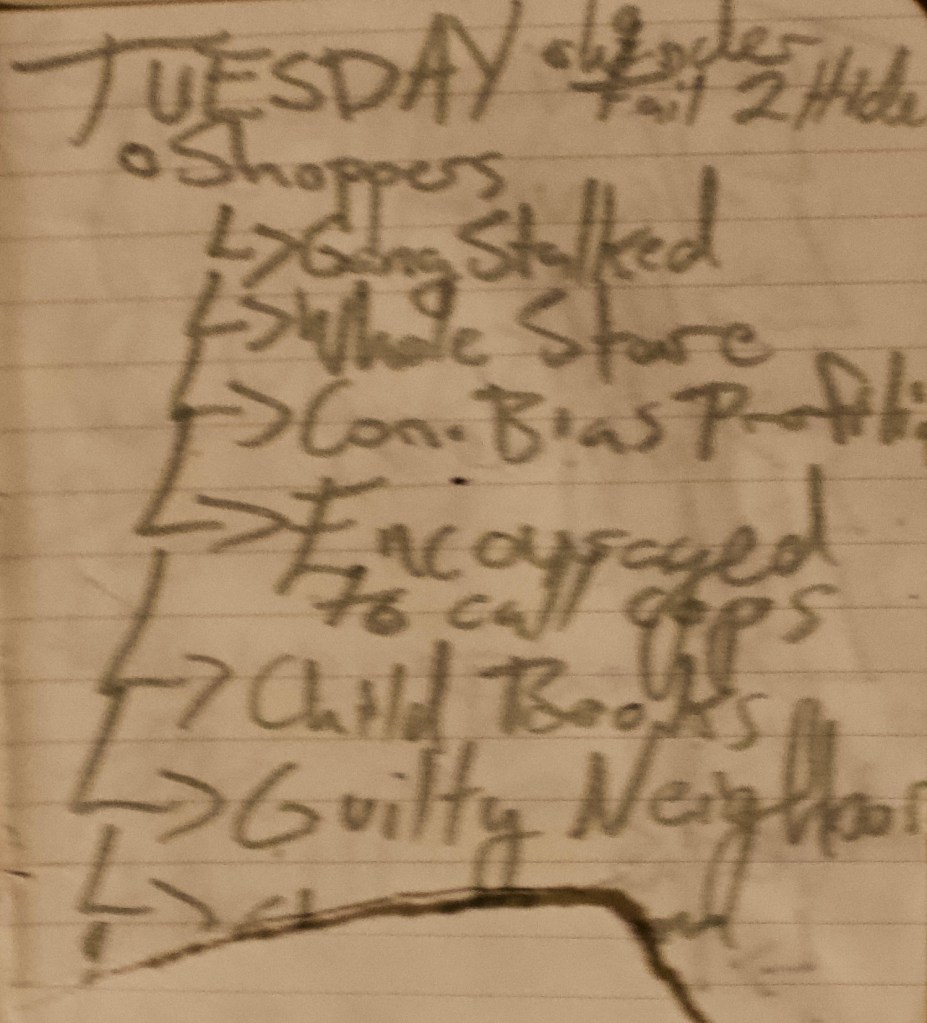 TUESDAY
Fail 2 Hide
o Shoppers
↳> Gang Stalked
↳> Whole Store
↳> Con. Bias Profili
↳> Encouraged
to call cops
↳> Child Books
↳> Guilty Neighbor